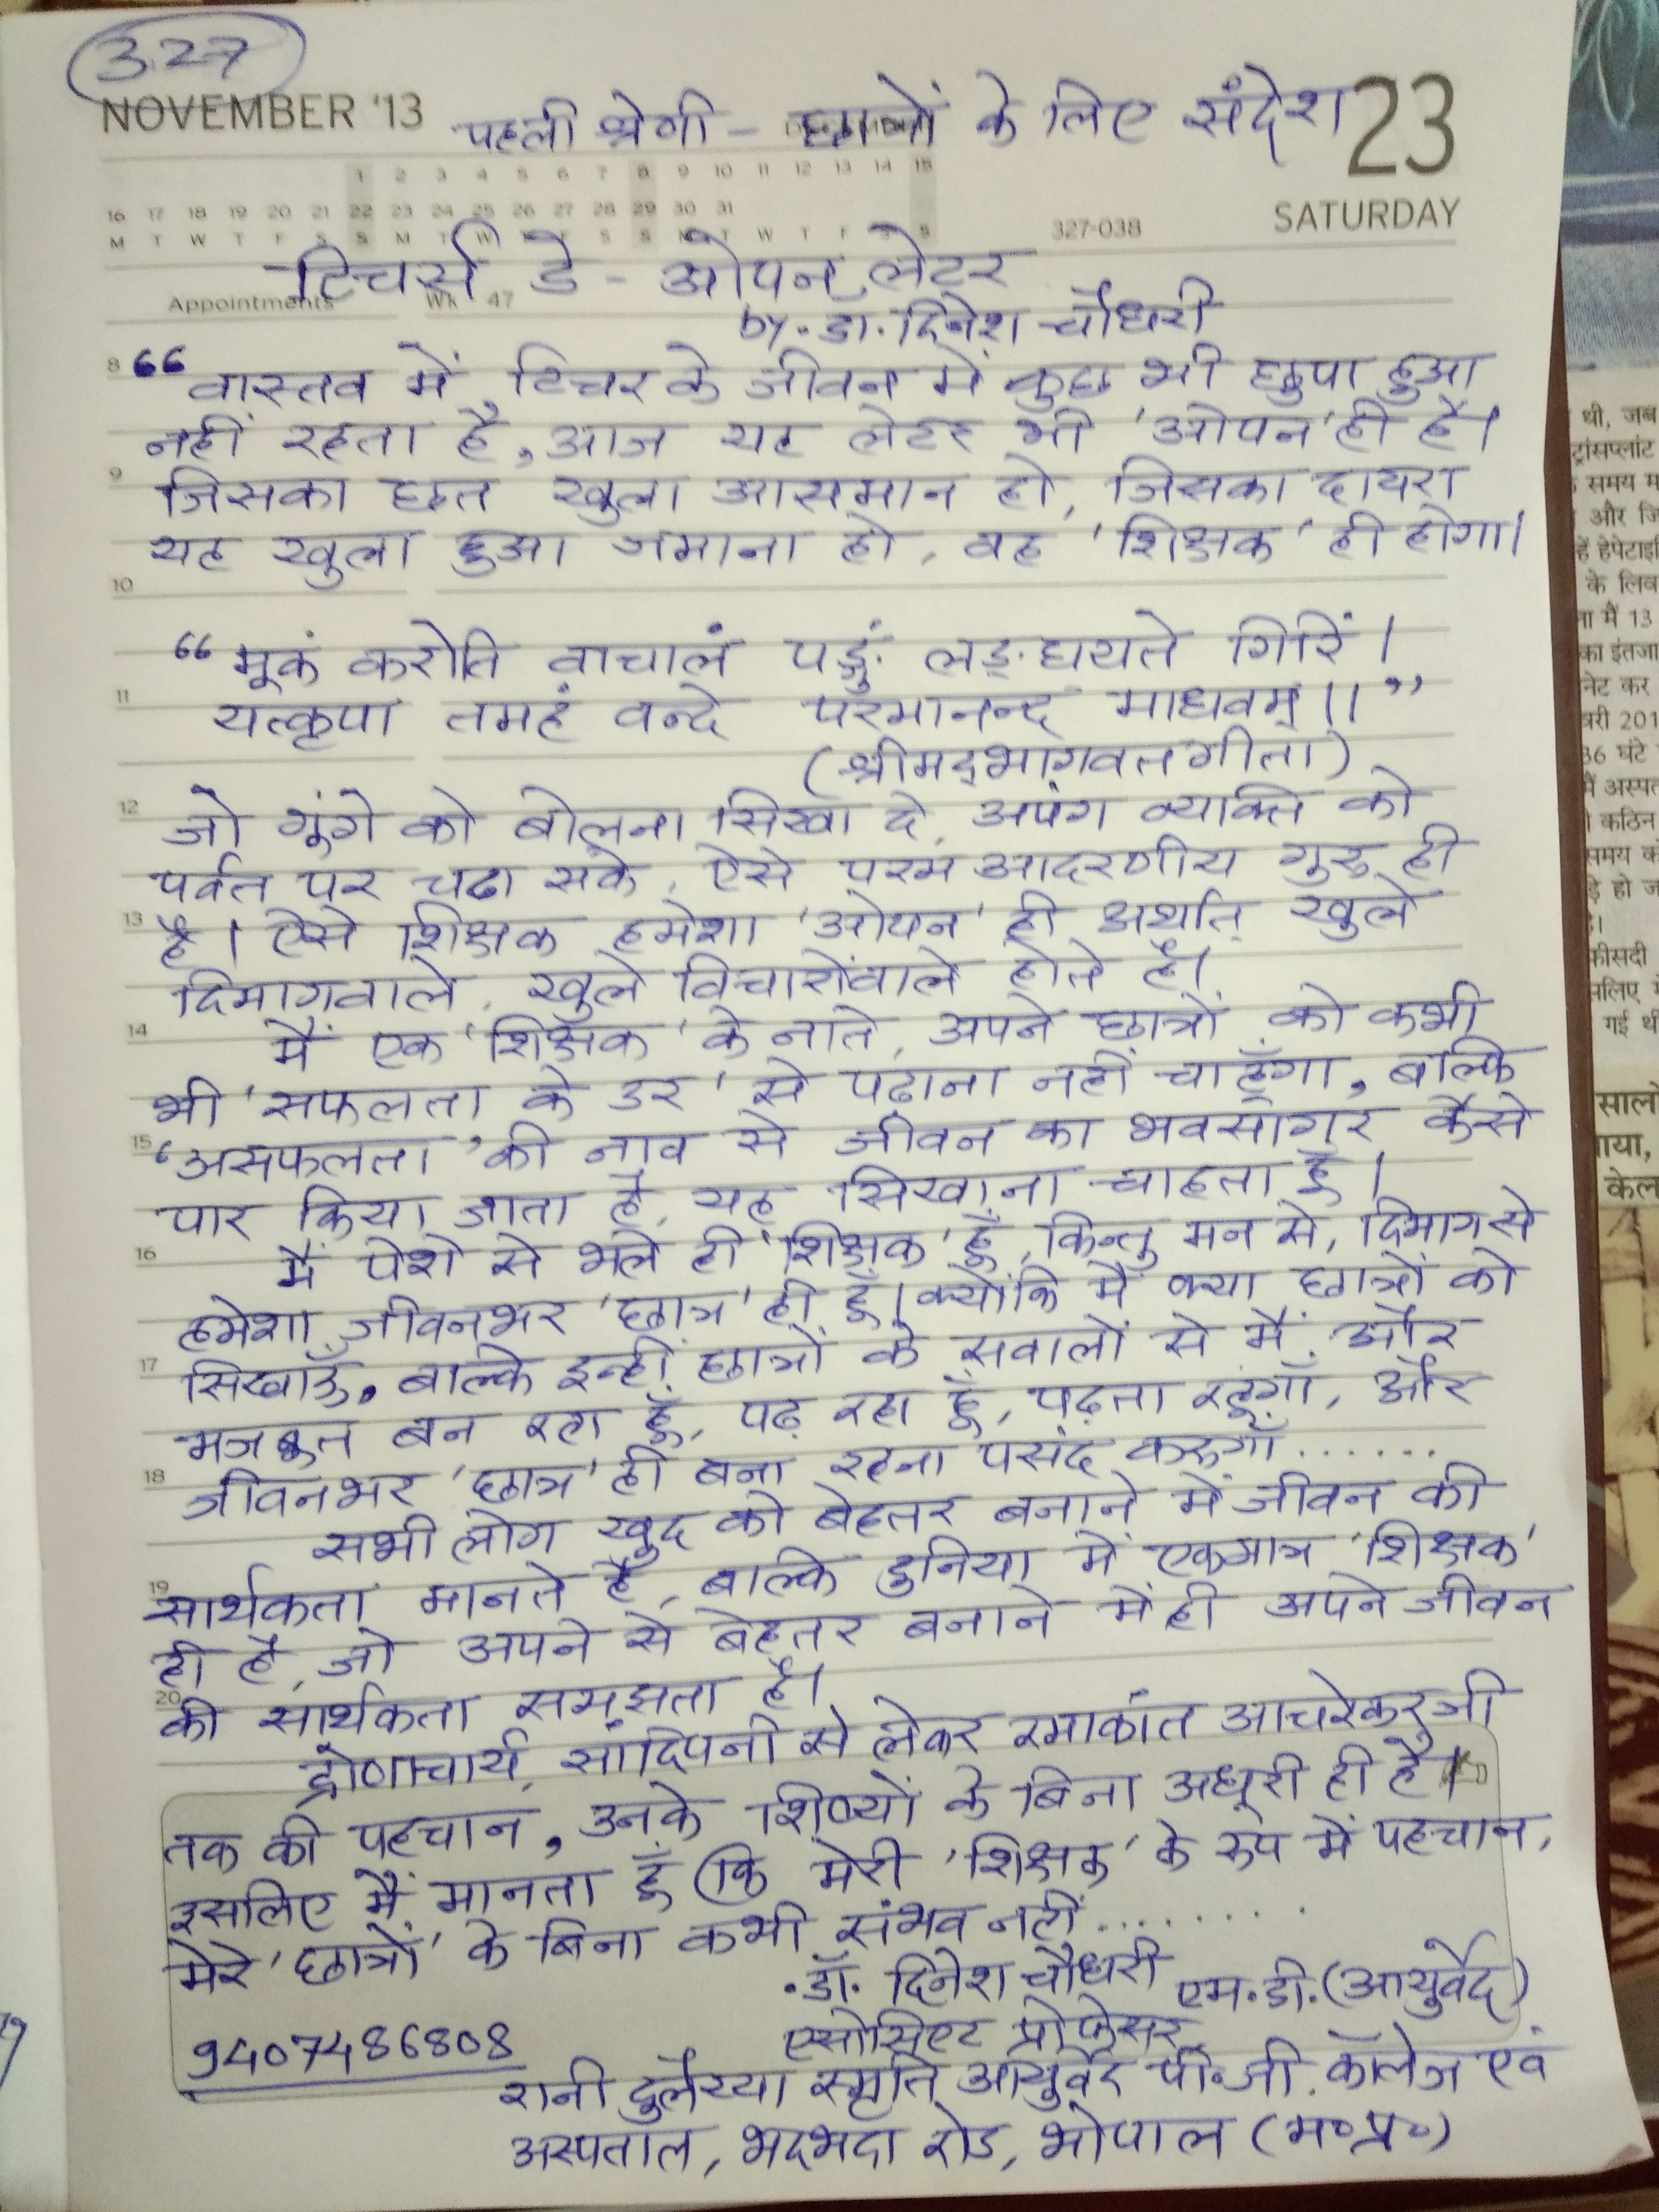 327
NOVEMBER '13
पहली श्रेणी - छात्रों के लिए संदेश
23
SATURDAY
1 2 3 4 5 6 7 8 9 10 11 12 13 14 15
16 17 18 19 20 21 22 23 24 25 26 27 28 29 30 31
M T W T F S S M T W T F S S M T W T F S S
327-038
टिचर्स डे - ओपन लेटर
Appointments Wk 47
by. डॉ. दिनेश चौधरी
8 "वास्तव में, टिचर के जीवन में कुछ भी छुपा हुआ
नहीं रहता है, आज यह लेटर भी 'ओपन' ही है।
9 जिसका छत खुला आसमान हो, जिसका दायरा
यह खुला हुआ जमाना हो, वह 'शिक्षक' ही होगा।
10
"मूकं करोति वाचालं पङ्गुं लङ्घयते गिरिं।
11 यत्कृपा तमहं वन्दे परमानन्द माधवम्।।"
(श्रीमद्भागवत गीता)
12 जो गूंगे को बोलना सिखा दे, अपंग व्यक्ति को
पर्वत पर चढा सके, ऐसे परम आदरणीय गुरु ही
13 है। ऐसे शिक्षक हमेशा 'ओपन' ही अर्थात् खुले
दिमागवाले, खुले विचारोंवाले होते है।
14 मैं एक 'शिक्षक' के नाते, अपने छात्रों को कभी
भी 'सफलता के डर' से पढ़ाना नहीं चाहूँगा, बल्कि
15 'असफलता' की नाव से जीवन का भवसागर कैसे
पार किया जाता है, यह सिखाना चाहता हूँ।
16 मैं पेशे से भले ही 'शिक्षक' हूँ, किन्तु मन से, दिमाग से
हमेशा जीवनभर 'छात्र' ही हूँ। क्योंकि मैं क्या छात्रों को
17 सिखाऊँ, बल्कि इन्हीं छात्रों के सवालों से मैं और
मजबूत बन रहा हूँ, पढ़ रहा हूँ, पढ़ता रहूगाँ, और
18 जीवनभर 'छात्र' ही बना रहना पसंद करुगाँ......
सभी लोग खुद को बेहतर बनाने में जीवन की
19 सार्थकता मानते है, बल्कि दुनिया में एकमात्र 'शिक्षक'
ही है, जो अपने से बेहतर बनाने में ही अपने जीवन
20 की सार्थकता समझता है।
द्रोणाचार्य, सांदिपनी से लेकर रमाकांत आचरेकर जी
तक की पहचान, उनके शिष्यों के बिना अधूरी ही है।
इसलिए मैं मानता हूँ कि मेरी 'शिक्षक' के रूप में पहचान,
मेरे 'छात्रों' के बिना कभी संभव नहीं........
. डॉ. दिनेश चौधरी एम.डी.(आयुर्वेद)
9407486808
एसोसिएट प्रोफेसर
रानी दुलैय्या स्मृति आयुर्वेद पी.जी. कॉलेज एवं
अस्पताल, भदभदा रोड, भोपाल (म०प्र०)